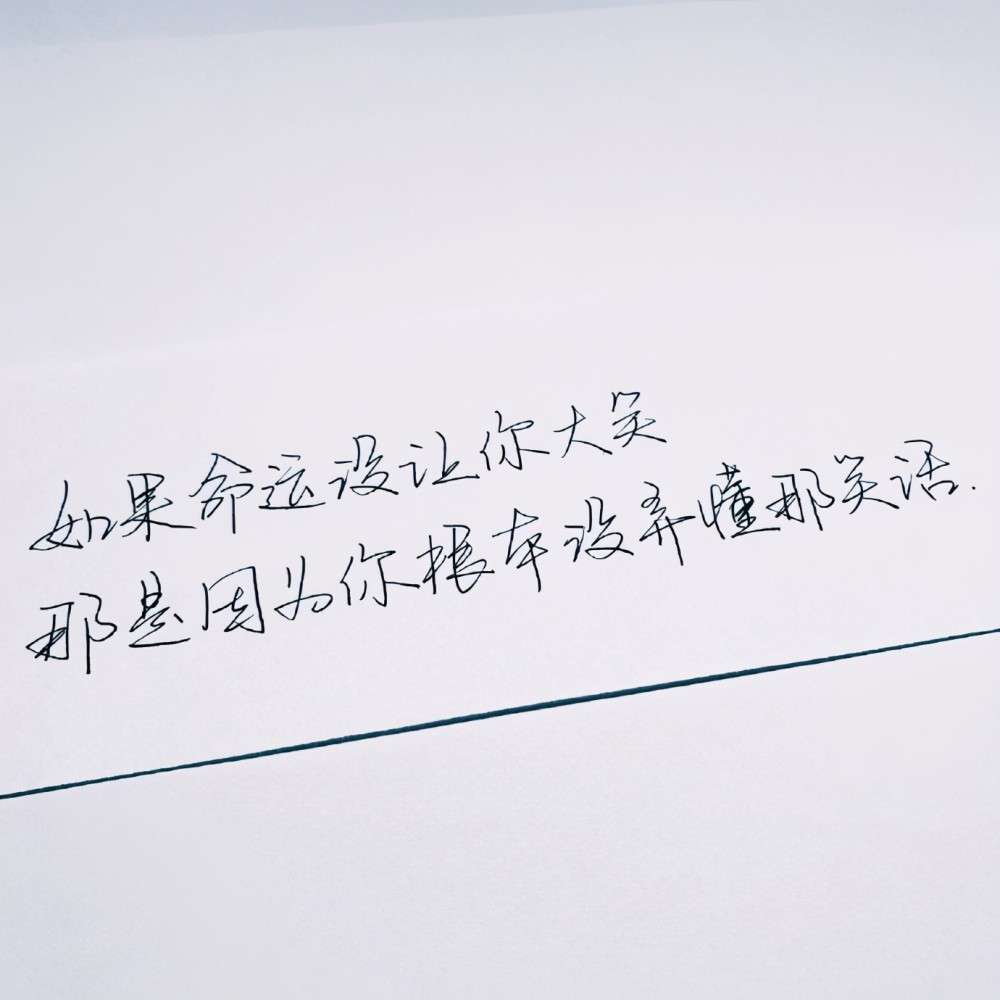 如果命运没让你大笑
那是因为你根本没弄懂那笑话.